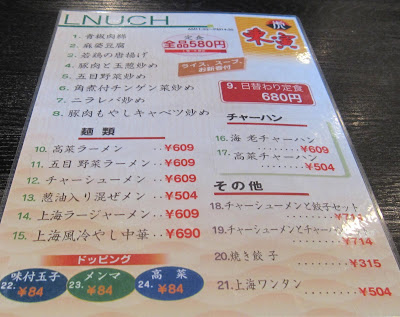 LNUCH
定食
全品580円
ライス、スープ、
お新香付
1. 青椒肉絲
2. 麻婆豆腐
3. 若鶏の唐揚げ
4. 豚肉と玉葱炒め
5. 五目野菜炒め
6. 角煮付チンゲン菜炒め
7. ニラレバ炒め
8. 豚肉もやしキャベツ炒め
9. 日替わり定食
680円
麺類
10. 高菜ラーメン‥¥609
11. 五目野菜ラーメン‥¥609
12. チャーシューメン‥¥609
13. 葱油入り混ぜメン‥¥504
14. 上海ラージャーメン‥¥609
15. 上海風冷やし中華‥¥690
チャーハン
16. 海老チャーハン
‥‥‥¥609
17. 高菜チャーハン
‥‥‥¥504
その他
18. チャーシューメンと餃子セット
‥‥‥¥714
19. チャーシューメンとチャーハン
‥‥‥¥714
20. 焼き餃子‥‥¥315
21. 上海ワンタン
‥‥‥¥504
ドッピング
味付玉子
22. ¥84
メンマ
23. ¥84
高菜
24. ¥84